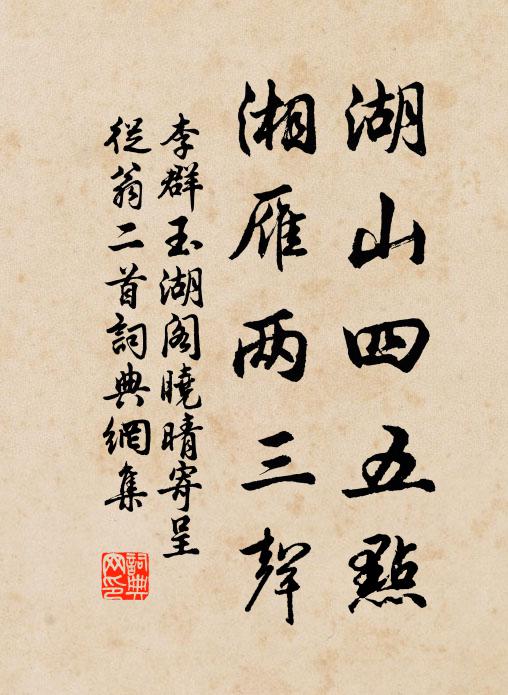 湖山四五點
湘雁两三聲
李群玉湖阁曉晴寄呈
從翁二首詞典網集
詞典
网印